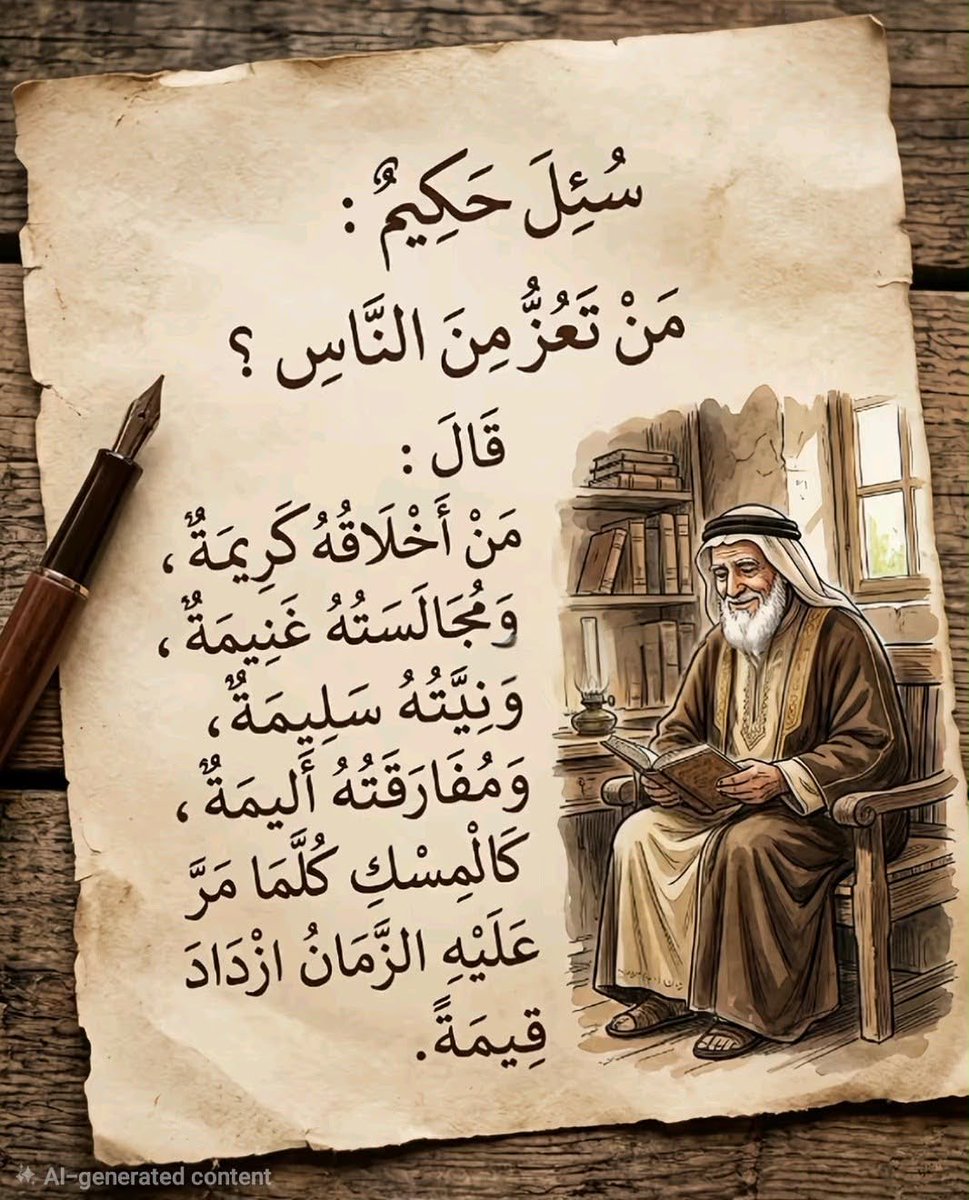 سُئِلَ حَكِيمٌ :
مَنْ تَعُزُّ مِنَ النَّاسِ ؟
قَالَ :
مَنْ أَخْلَاقُهُ كَرِيمَةٌ ،
وَمُجَالَسَتُهُ غَنِيمَةٌ ،
وَنِيَّتُهُ سَلِيمَةٌ ،
وَمُفَارَقَتُهُ أَلِيمَةٌ ،
كَالْمِسْكِ كُلَّمَا مَرَّ
عَلَيْهِ الزَّمَانُ ازْدَادَ
قِيمَةً.
AI-generated content